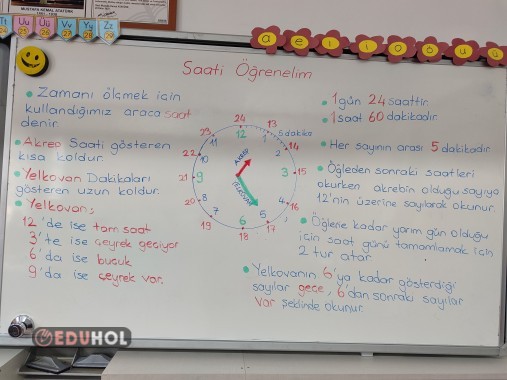 MUSTAFA KEMAL ATATÜRK
Tt Uu Üü Vv Yy Zz
24 25 26 27 28 29
a e ı i o ö u ü
Saati Öğrenelim
• Zamanı ölçmek için
kullandığımız araca saat
denir.
• Akrep Saati gösteren
kısa koldur.
• Yelkovan Dakikaları
gösteren uzun koldur.
• Yelkovan;
12'de ise tam saat
3'te ise çeyrek geçiyor
6'da ise buçuk
9'da ise çeyrek var.
24
13
23
12
5 dakika
11
1
14
22
10
2
AKREP
21
9
3
15
YELKOVAN
20
8
4
16
19
7
5
17
6
18
• 1 gün 24 saattir.
• 1 saat 60 dakikadır.
• Her sayının arası 5 dakikadır.
• Öğleden sonraki saatleri
okurken akrebin olduğu sayıya
12'nin üzerine sayılarak okunur.
• Öğlene kadar yarım gün olduğu
için saat günü tamamlamak için
2 tur atar.
• Yelkovanın 6'ya kadar gösterdiği
sayılar geçe, 6'dan sonraki sayılar
var şeklinde okunur.
EDUHOL